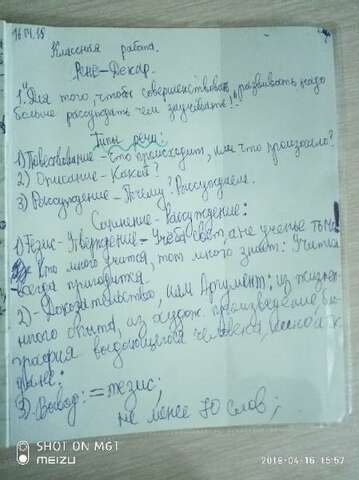 16.04.18
Классная работа.
Рене-Декар.
1. "Для того, чтобы совершенствовать, развивать надо
больше рассуждать чем заучивать!"
Типы речи:
1) Повествование - Что происходит, или что произошло?
2) Описание - Какой?
3) Рассуждение - Почему? Рассуждаем.
Сочинение - Рассуждение:
1) Тезис - Утверждение - Учёба свет, а не ученье тьма
Кто много учится, тот много знает. Учится
всегда пригодится.
2) - Доказательство, или Аргумент: из жизнен-
ного опыта, из худож. произведение би-
графия выдающегося человека,
3) Вывод: = тезис;
не менее 70 слов;
SHOT ON MGT
MEIZU
2018-04-16 15:57